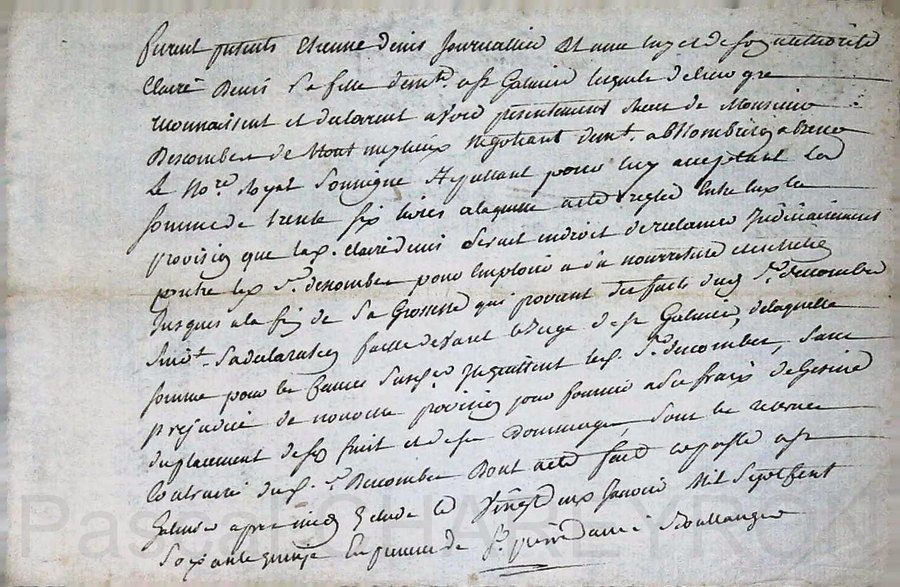 furent présents Etienne Denis Journallier Et avec luy et de son authorité
Claire Denis Sa fille demts. a St Galmier lesquels de leur gré
reconnaissent et declarent avoir présentement Receu de Monsieur
Descombes de Montmelieux négotiant demt. a absent
le Nore. Royal Soussigné Stipullant pour luy acceptant la
somme de trente six livres a laquelle a été réglé Entre eux la
provision que lad. Claire denis Serait endroit de reclamer Judiciairement
contre led. Sr. descombes pour Emploier a sa nourriture et
Jusques a la fin de Sa Grossesse qui provient des faits dud. Sr. descombes
Suivt. Sa declaration faitte devant le Juge de St Galmier, de laquelle
somme pour les causes Susd. quittent led. Sr. descombes, Sans
préjudice de nouvelle provision pour fournir a Ses fraix de Gesine
du placement de son fruit et de ses Dommages, Sous les reserves
Contraires dud. Sr. Descombes Dont acte fait et passé a St
Galmier apres midy Etude le Vingt deux Janvier Mil Sept Cent
Soixante quinze En présence de Sr. pierre Boullanger
Pascal CHARLEYRON